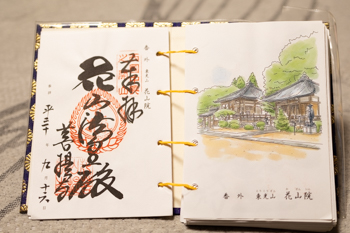 番外 東光山 花山院
奉拝
花山法皇殿
菩提寺
平成二十年九月十六日
番外 東光山 花山院